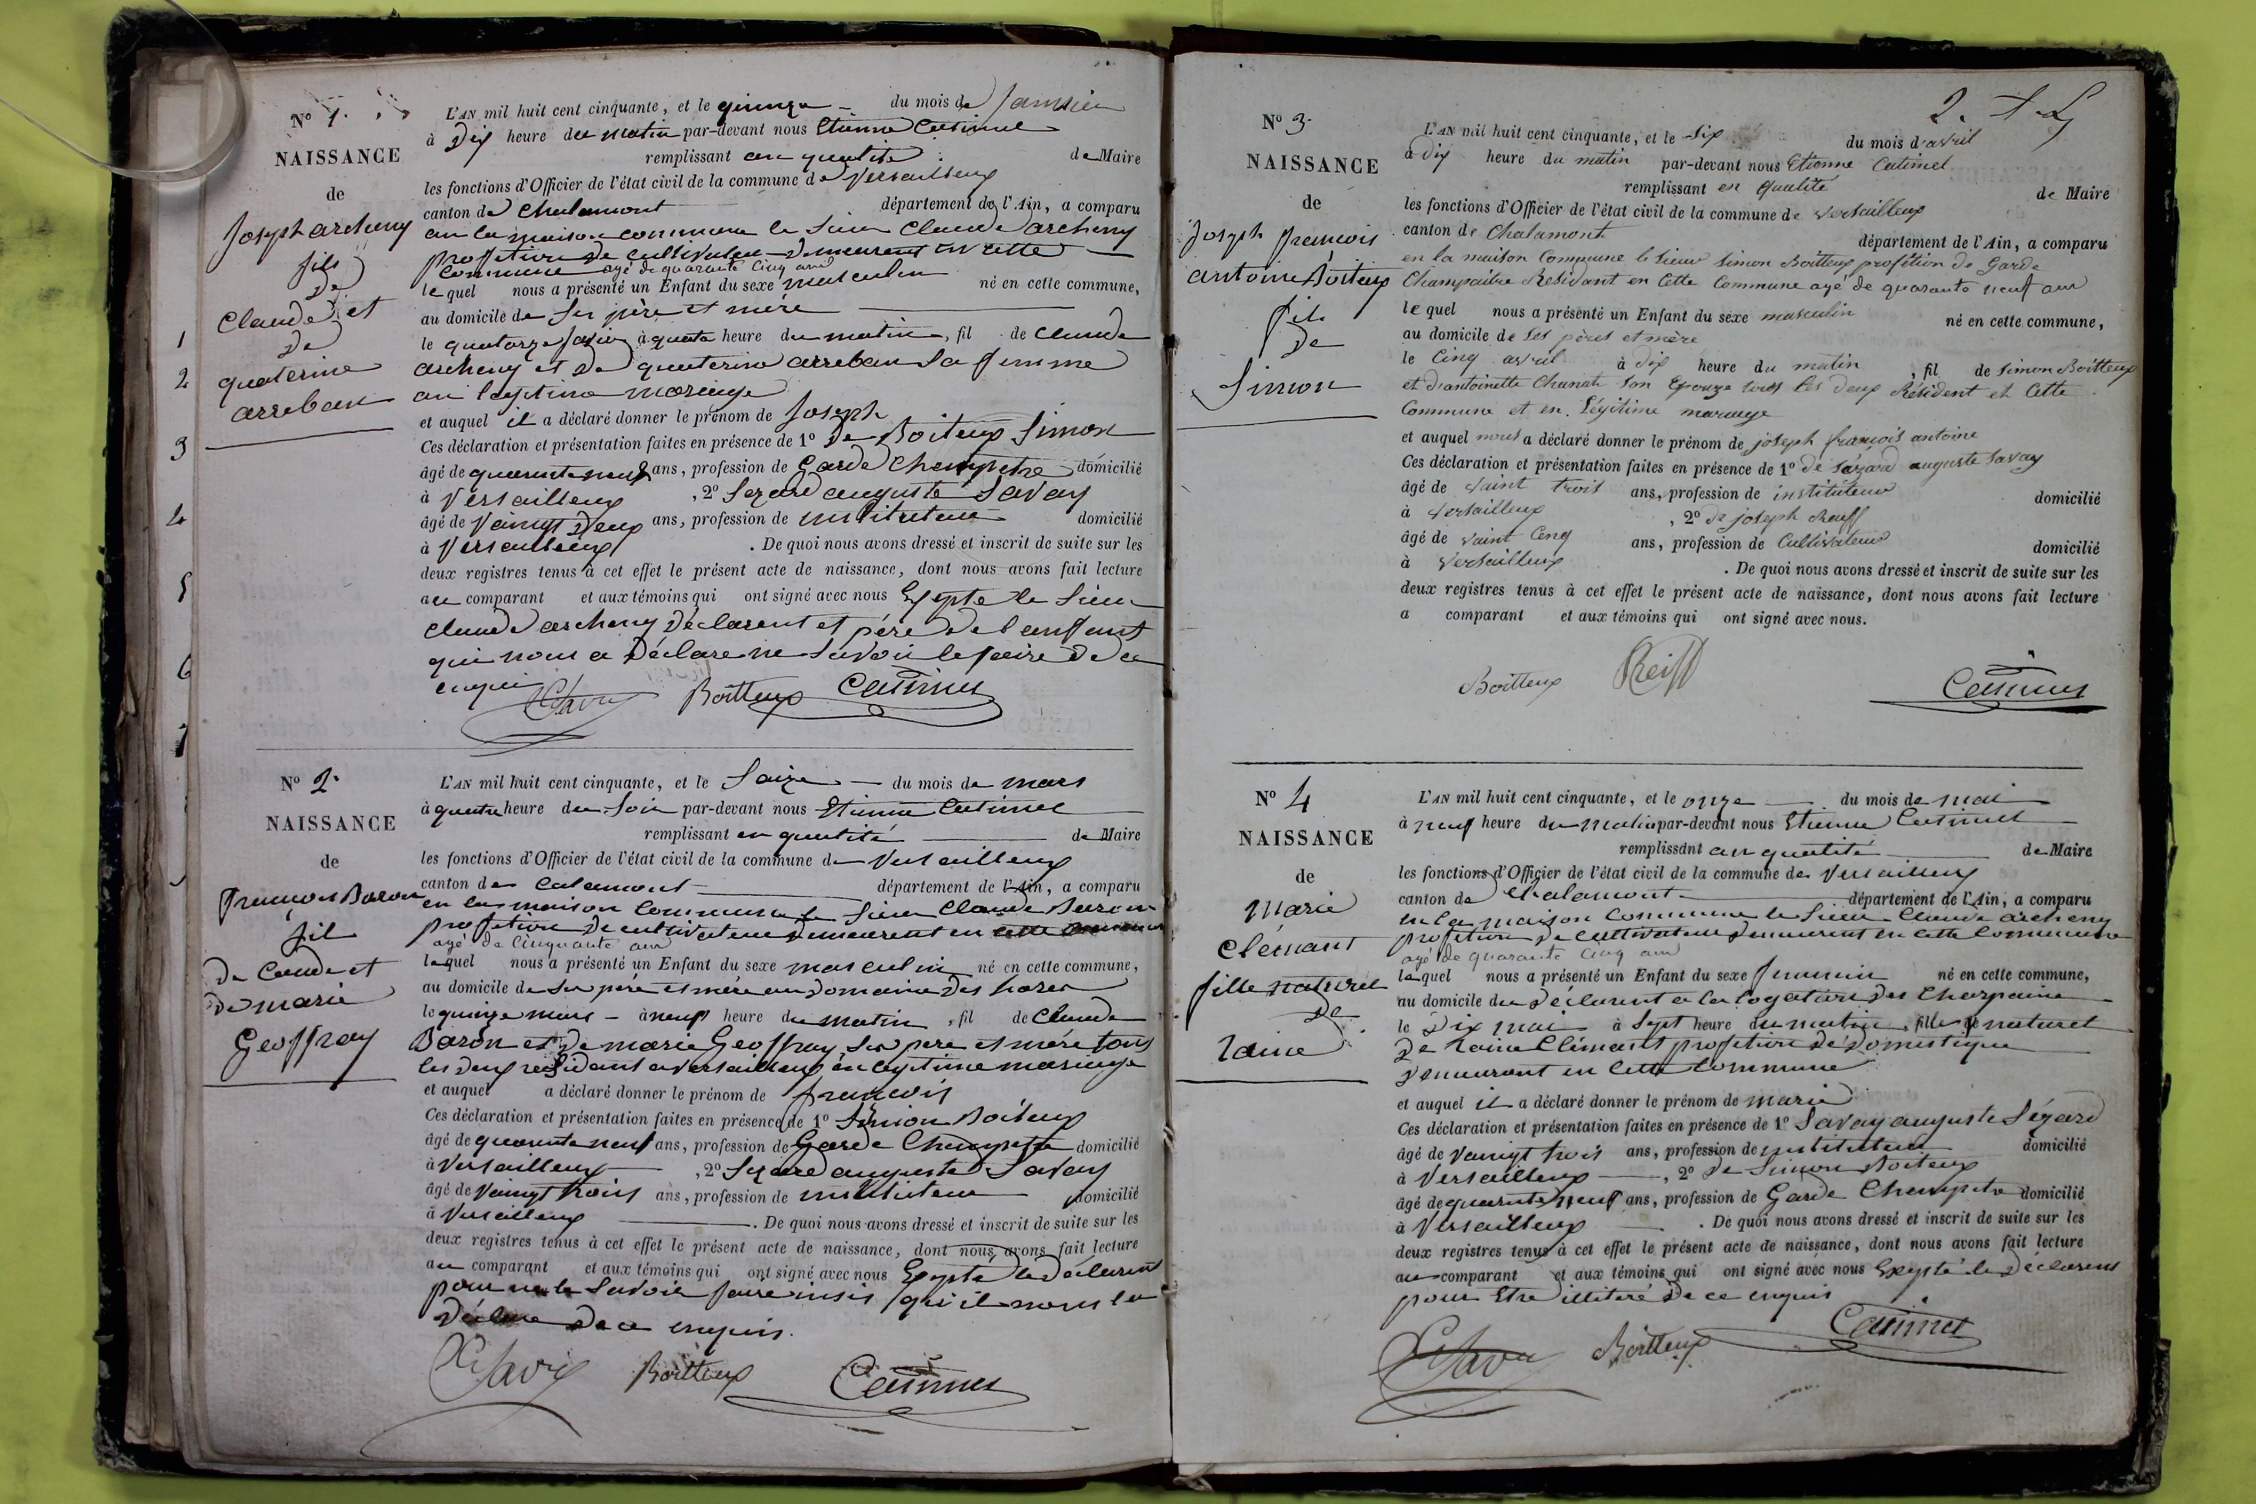 N° 1.
NAISSANCE
de
Joseph archeny
fils
De
Claude et
De
quaterine
arreban
1
2
3
4
5
6
7
L'AN mil huit cent cinquante, et le quinze du mois de Janvier
à Dix heure du matin par-devant nous Etienne Catimel
remplissant en qualité de Maire
les fonctions d'Officier de l'état civil de la commune de Versailleux
canton de Chalamont département de l'Ain, a comparu
en la maison commune le sieur Claude archeny
profition de cultivateur demeurent en cette
commune agé de quarante cinq ans
lequel nous a présenté un Enfant du sexe masculin né en cette commune,
au domicile de ses père et mère
le quatorze Janvier à quatre heure du matin, fil de Claude
archeny et de quaterine arreban sa femme
en légitime mariage
et auquel il a déclaré donner le prénom de Joseph
Ces déclaration et présentation faites en présence de 1° De Boiteux Simon
âgé de quarente neuf ans, profession de Garde Champetre domicilié
à Versailleux, 2° Sezard auguste Savay
âgé de Vaingt Deux ans, profession de instituteur domicilié
à Versailleux. De quoi nous avons dressé et inscrit de suite sur les
deux registres tenus à cet effet le présent acte de naissance, dont nous avons fait lecture
au comparant et aux témoins qui ont signé avec nous Exepté le Sieur
Claude archeny Déclarent et père de l'enfant
qui nous a Déclare ne Savoir le faire de ce
enquis
Savay Boitteux Catimel
N° 2.
NAISSANCE
de
françois Baron
fil
de Caude et
De marie
Geoffray
L'AN mil huit cent cinquante, et le Saize du mois de mars
à quatre heure du Soir par-devant nous Etienne Catimel
remplissant en qualité de Maire
les fonctions d'Officier de l'état civil de la commune de Versailleux
canton de Calamont département de l'Ain, a comparu
en la maison Commune le Sieur Claude Baron
profition de cultivateur demeurent en cette commune
agé de Cinquante ans
lequel nous a présenté un Enfant du sexe masculin né en cette commune,
au domicile de ses père et mère au domaine des
le quinze mars à neuf heure du matin, fil de Claude
Baron et De marie Geoffray, Ses pere et mère tous
les deux residant a Versailleux en legitime mariage
et auquel a déclaré donner le prénom de françois
Ces déclaration et présentation faites en présence de 1° Simon Boiteux
âgé de quarente neuf ans, profession de Garde Champetre domicilié
à Versailleux, 2° Sezard auguste Savay
âgé de Vaingt trois ans, profession de instituteur domicilié
à Versailleux. De quoi nous avons dressé et inscrit de suite sur les
deux registres tenus à cet effet le présent acte de naissance, dont nous avons fait lecture
au comparant et aux témoins qui ont signé avec nous Exepté le Déclarent
pour ne le Savoir faire insis qu'il nous la
Déclare De ce enquis.
Savay Boitteux Catimel
2.
N° 3.
NAISSANCE
de
Joseph françois
antoine Boiteux
fil
De
Simon
L'AN mil huit cent cinquante, et le Six du mois d'avril
à dix heure du matin par-devant nous Etienne Catimel
remplissant en qualité de Maire
les fonctions d'Officier de l'état civil de la commune de Versailleux
canton de Chalamont département de l'Ain, a comparu
en la maison Commune le sieur Simon Boitteux profition de Garde
Champaitre Résidant en Cette Commune agé de quarante neuf ans
lequel nous a présenté un Enfant du sexe masculin né en cette commune,
au domicile de ses pères et mère
le Cinq avril à dix heure du matin, fil de Simon Boitteux
et d'antoinette Chanat Son Epouze tous les deux Résident et Cette
Commune et en Légitime mariage
et auquel nous a déclaré donner le prénom de joseph françois antoine
Ces déclaration et présentation faites en présence de 1° de Sézard auguste Savay
âgé de vaint trois ans, profession de instituteur domicilié
à Versailleux, 2° de joseph
âgé de vaint Cinq ans, profession de Cultivateur domicilié
à Versailleux. De quoi nous avons dressé et inscrit de suite sur les
deux registres tenus à cet effet le présent acte de naissance, dont nous avons fait lecture
a comparant et aux témoins qui ont signé avec nous.
Boitteux Reiff Catimel
N° 4
NAISSANCE
de
Marie
Clémant
fille naturel
De
Raine
L'AN mil huit cent cinquante, et le onze du mois de mai
à neuf heure du Matin par-devant nous Etienne Catimel
remplissant en qualité de Maire
les fonctions d'Officier de l'état civil de la commune de Versailleux
canton de Chalamont département de l'Ain, a comparu
en la maison Commune le Sieur Claude archeny
profition de Cultivateur demeurent en Cette Commune
agé de quarante Cinq ans
lequel nous a présenté un Enfant du sexe feminin né en cette commune,
au domicile du Déclarent a la Locature des Charpaine
le Dix mai à Sept heure du matin, fille de naturel
De Raine Clémant profition De Domestique
Demeurant en Cette Commune
et auquel il a déclaré donner le prénom de marie
Ces déclaration et présentation faites en présence de 1° Savay auguste Sézard
âgé de Vaingt trois ans, profession de instituteur domicilié
à Versailleux, 2° De Simon Boiteux
âgé de quarente neuf ans, profession de Garde Champetre domicilié
à Versailleux. De quoi nous avons dressé et inscrit de suite sur les
deux registres tenus à cet effet le présent acte de naissance, dont nous avons fait lecture
au comparant et aux témoins qui ont signé avec nous Exepté le Déclarent
pour Etre illiteré De ce enquis
Savay Boitteux Catimel